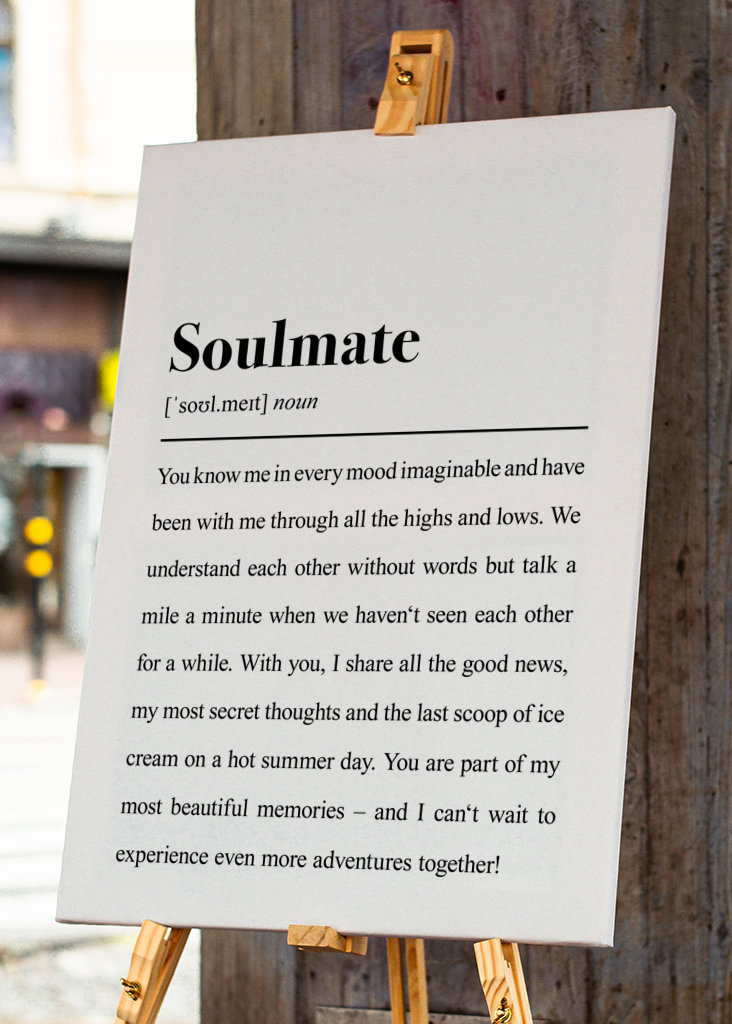 Soulmate
[ˈsoʊl.meɪt] noun
You know me in every mood imaginable and have
been with me through all the highs and lows. We
understand each other without words but talk a
mile a minute when we haven‘t seen each other
for a while. With you, I share all the good news,
my most secret thoughts and the last scoop of ice
cream on a hot summer day. You are part of my
most beautiful memories – and I can‘t wait to
experience even more adventures together!